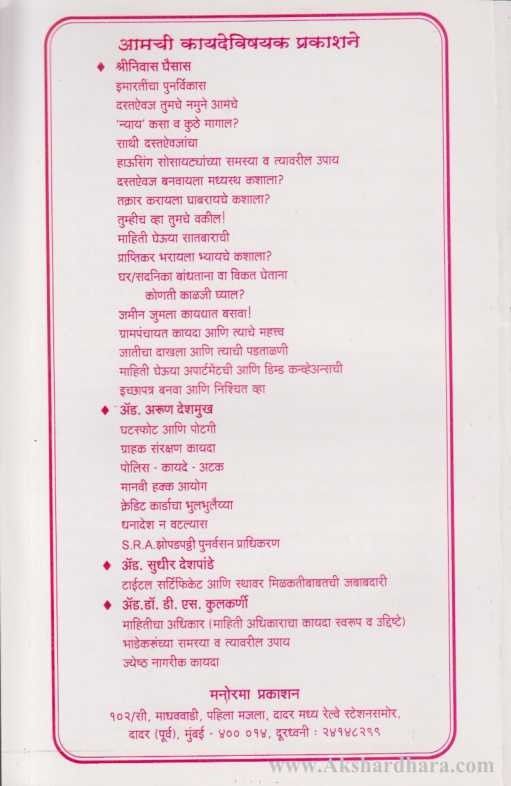 आमची कायदेविषयक प्रकाशने
♦ श्रीनिवास घैसास
इमारतींचा पुनर्विकास
दस्तऐवज तुमचे नमुने आमचे
'न्याय' कसा व कुठे मागाल?
साथी दस्तऐवजांचा
हाऊसिंग सोसायट्यांच्या समस्या व त्यावरील उपाय
दस्तऐवज बनवायला मध्यस्थ कशाला?
तक्रार करायला घाबरायचे कशाला?
तुम्हीच व्हा तुमचे वकील!
माहिती घेऊया सातबाराची
प्राप्तिकर भरायला भ्यायचे कशाला?
घर/सदनिका बांधताना वा विकत घेताना
कोणती काळजी घ्याल?
जमीन जुमला कायद्यात बसवा!
ग्रामपंचायत कायदा आणि त्याचे महत्त्व
जातीचा दाखला आणि त्याची पडताळणी
माहिती घेऊया अपार्टमेंटची आणि डिम्ड कन्व्हेअन्सची
इच्छापत्र बनवा आणि निश्चित व्हा
♦ ॲड. अरूण देशमुख
घटस्फोट आणि पोटगी
ग्राहक संरक्षण कायदा
पोलिस - कायदे - अटक
मानवी हक्क आयोग
क्रेडिट कार्डाचा भुलभुलैय्या
धनादेश न वटल्यास
S.R.A.झोपडपट्टी पुनर्वसन प्राधिकरण
♦ ॲड. सुधीर देशपांडे
टाईटल सर्टिफिकेट आणि स्थावर मिळकतीबाबतची जबाबदारी
♦ ॲड.डॉ. डी. एस. कुलकर्णी
माहितीचा अधिकार (माहिती अधिकाराचा कायदा स्वरूप व उद्दिष्टे)
भाडेकरूंच्या समस्या व त्यावरील उपाय
ज्येष्ठ नागरीक कायदा
मनोरमा प्रकाशन
१०२/सी, माधववाडी, पहिला मजला, दादर मध्य रेल्वे स्टेशनसमोर,
दादर (पूर्व), मुंबई - ४०० ०१४, दूरध्वनी : २४१४८२९९
www.Akshardhara.com